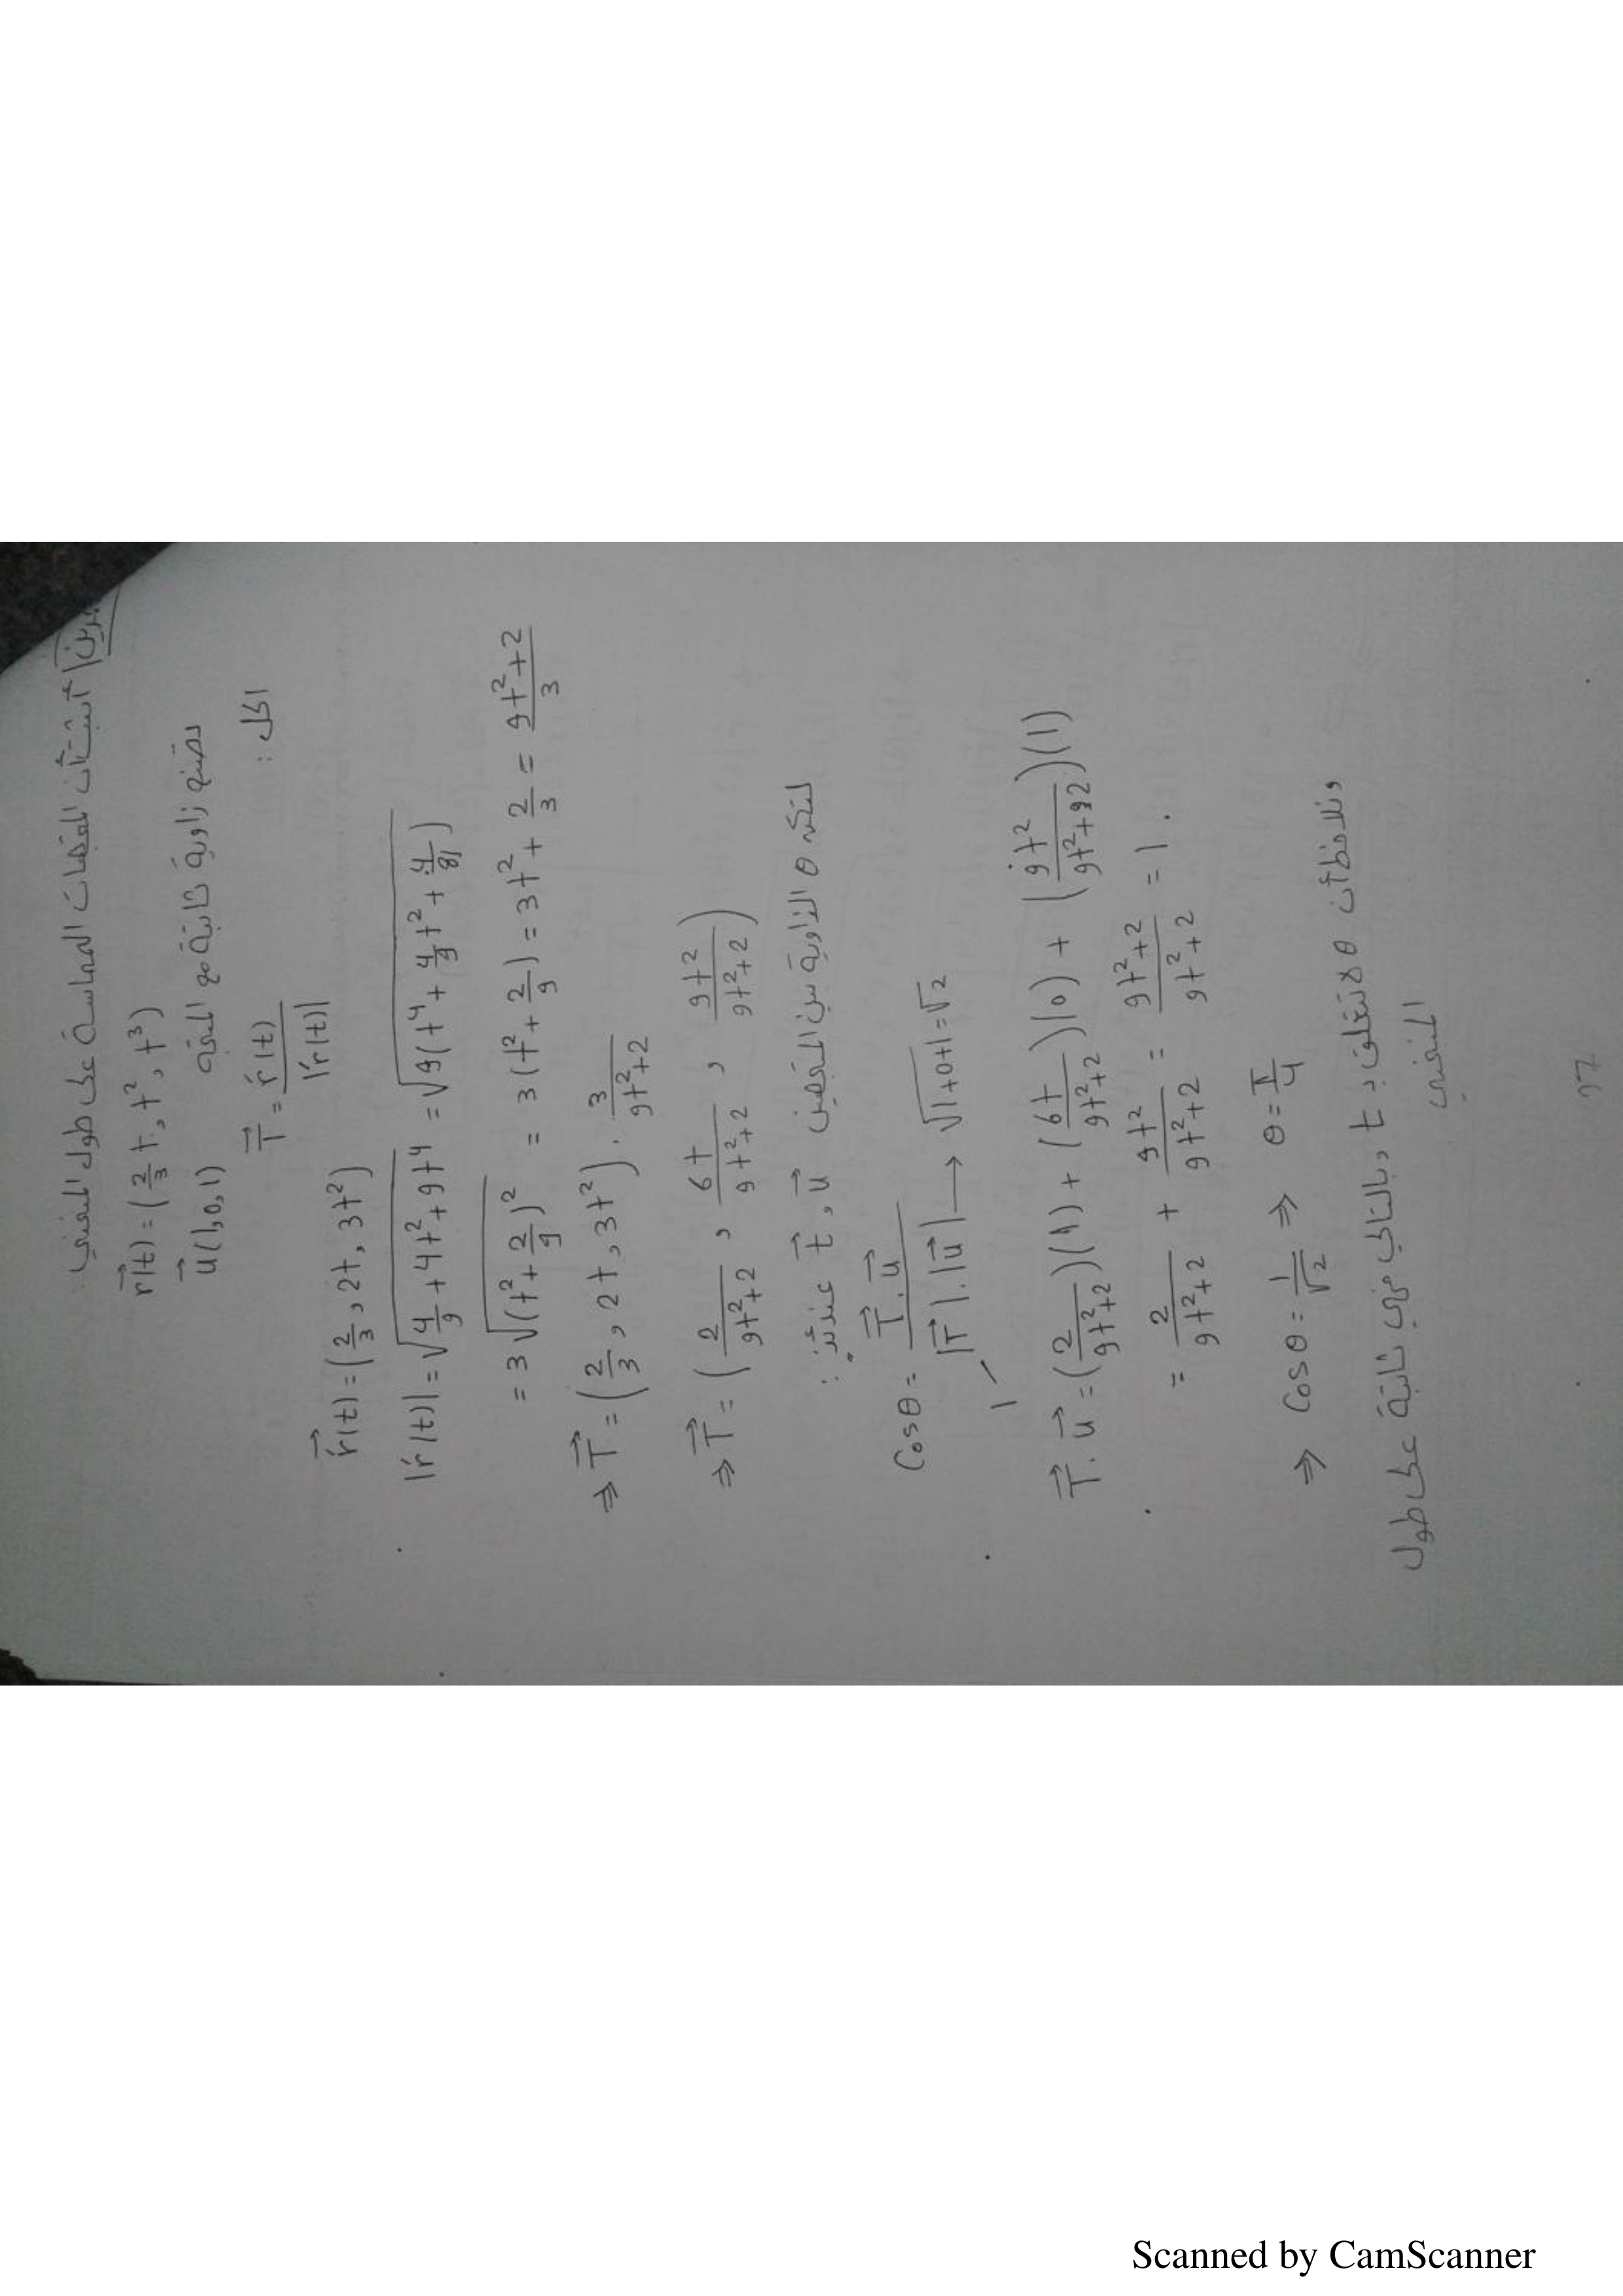 تمرين | أثبت أن المتجهات المماسة على طول المنحني :
r⃗(t) = (2/3 t, t², t³)
تصنع زاوية ثابتة مع المتجه u⃗(1,0,1)
الحل :
T⃗ = r′(t) / |r′(t)|
r⃗′(t) = (2/3, 2t, 3t²)
|r′(t)| = √(4/9 + 4t² + 9t⁴) = √(9(t⁴ + 4/9 t² + 4/81))
= 3√((t² + 2/9)²) = 3(t² + 2/9) = 3t² + 2/3 = (9t²+2)/3
⇒ T⃗ = (2/3, 2t, 3t²) · 3/(9t²+2)
⇒ T⃗ = (2/(9t²+2), 6t/(9t²+2), 9t²/(9t²+2))
لتكن θ الزاوية بين المتجهين t⃗, u⃗ عندئذ :
Cosθ = T⃗·u⃗ / |T⃗|·|u⃗| → √(1+0+1) = √2
1
T⃗·u⃗ = (2/(9t²+2))(1) + (6t/(9t²+2))(0) + (9t²/(9t²+92))(1)
= 2/(9t²+2) + 9t²/(9t²+2) = (9t²+2)/(9t²+2) = 1 .
⇒ Cosθ = 1/√2 ⇒ θ = π/4
ونلاحظ أن θ لا تتعلق بـ t وبالتالي فهي ثابتة على طول
المنحني
Scanned by CamScanner